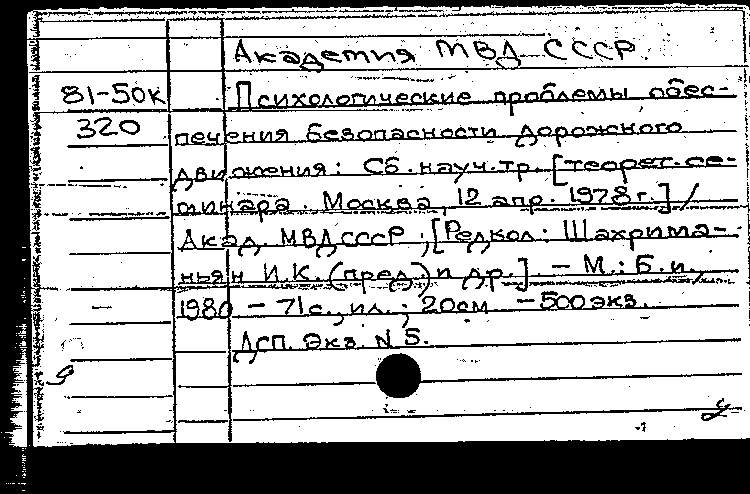 Академия МВД СССР
81-50к Психологические проблемы обес-
320 печения безопасности дорожного
движения: Сб. науч. тр. [теорет. се-
минара. Москва, 12 апр. 1978 г.] /
Акад. МВД СССР; [Редкол: Шахрима-
ньян И.К. (пред.) и др.]. — М.: Б.и.,
1980 — 71 с., ил.; 20см — 500 экз.
ДСП. Экз. N 5.